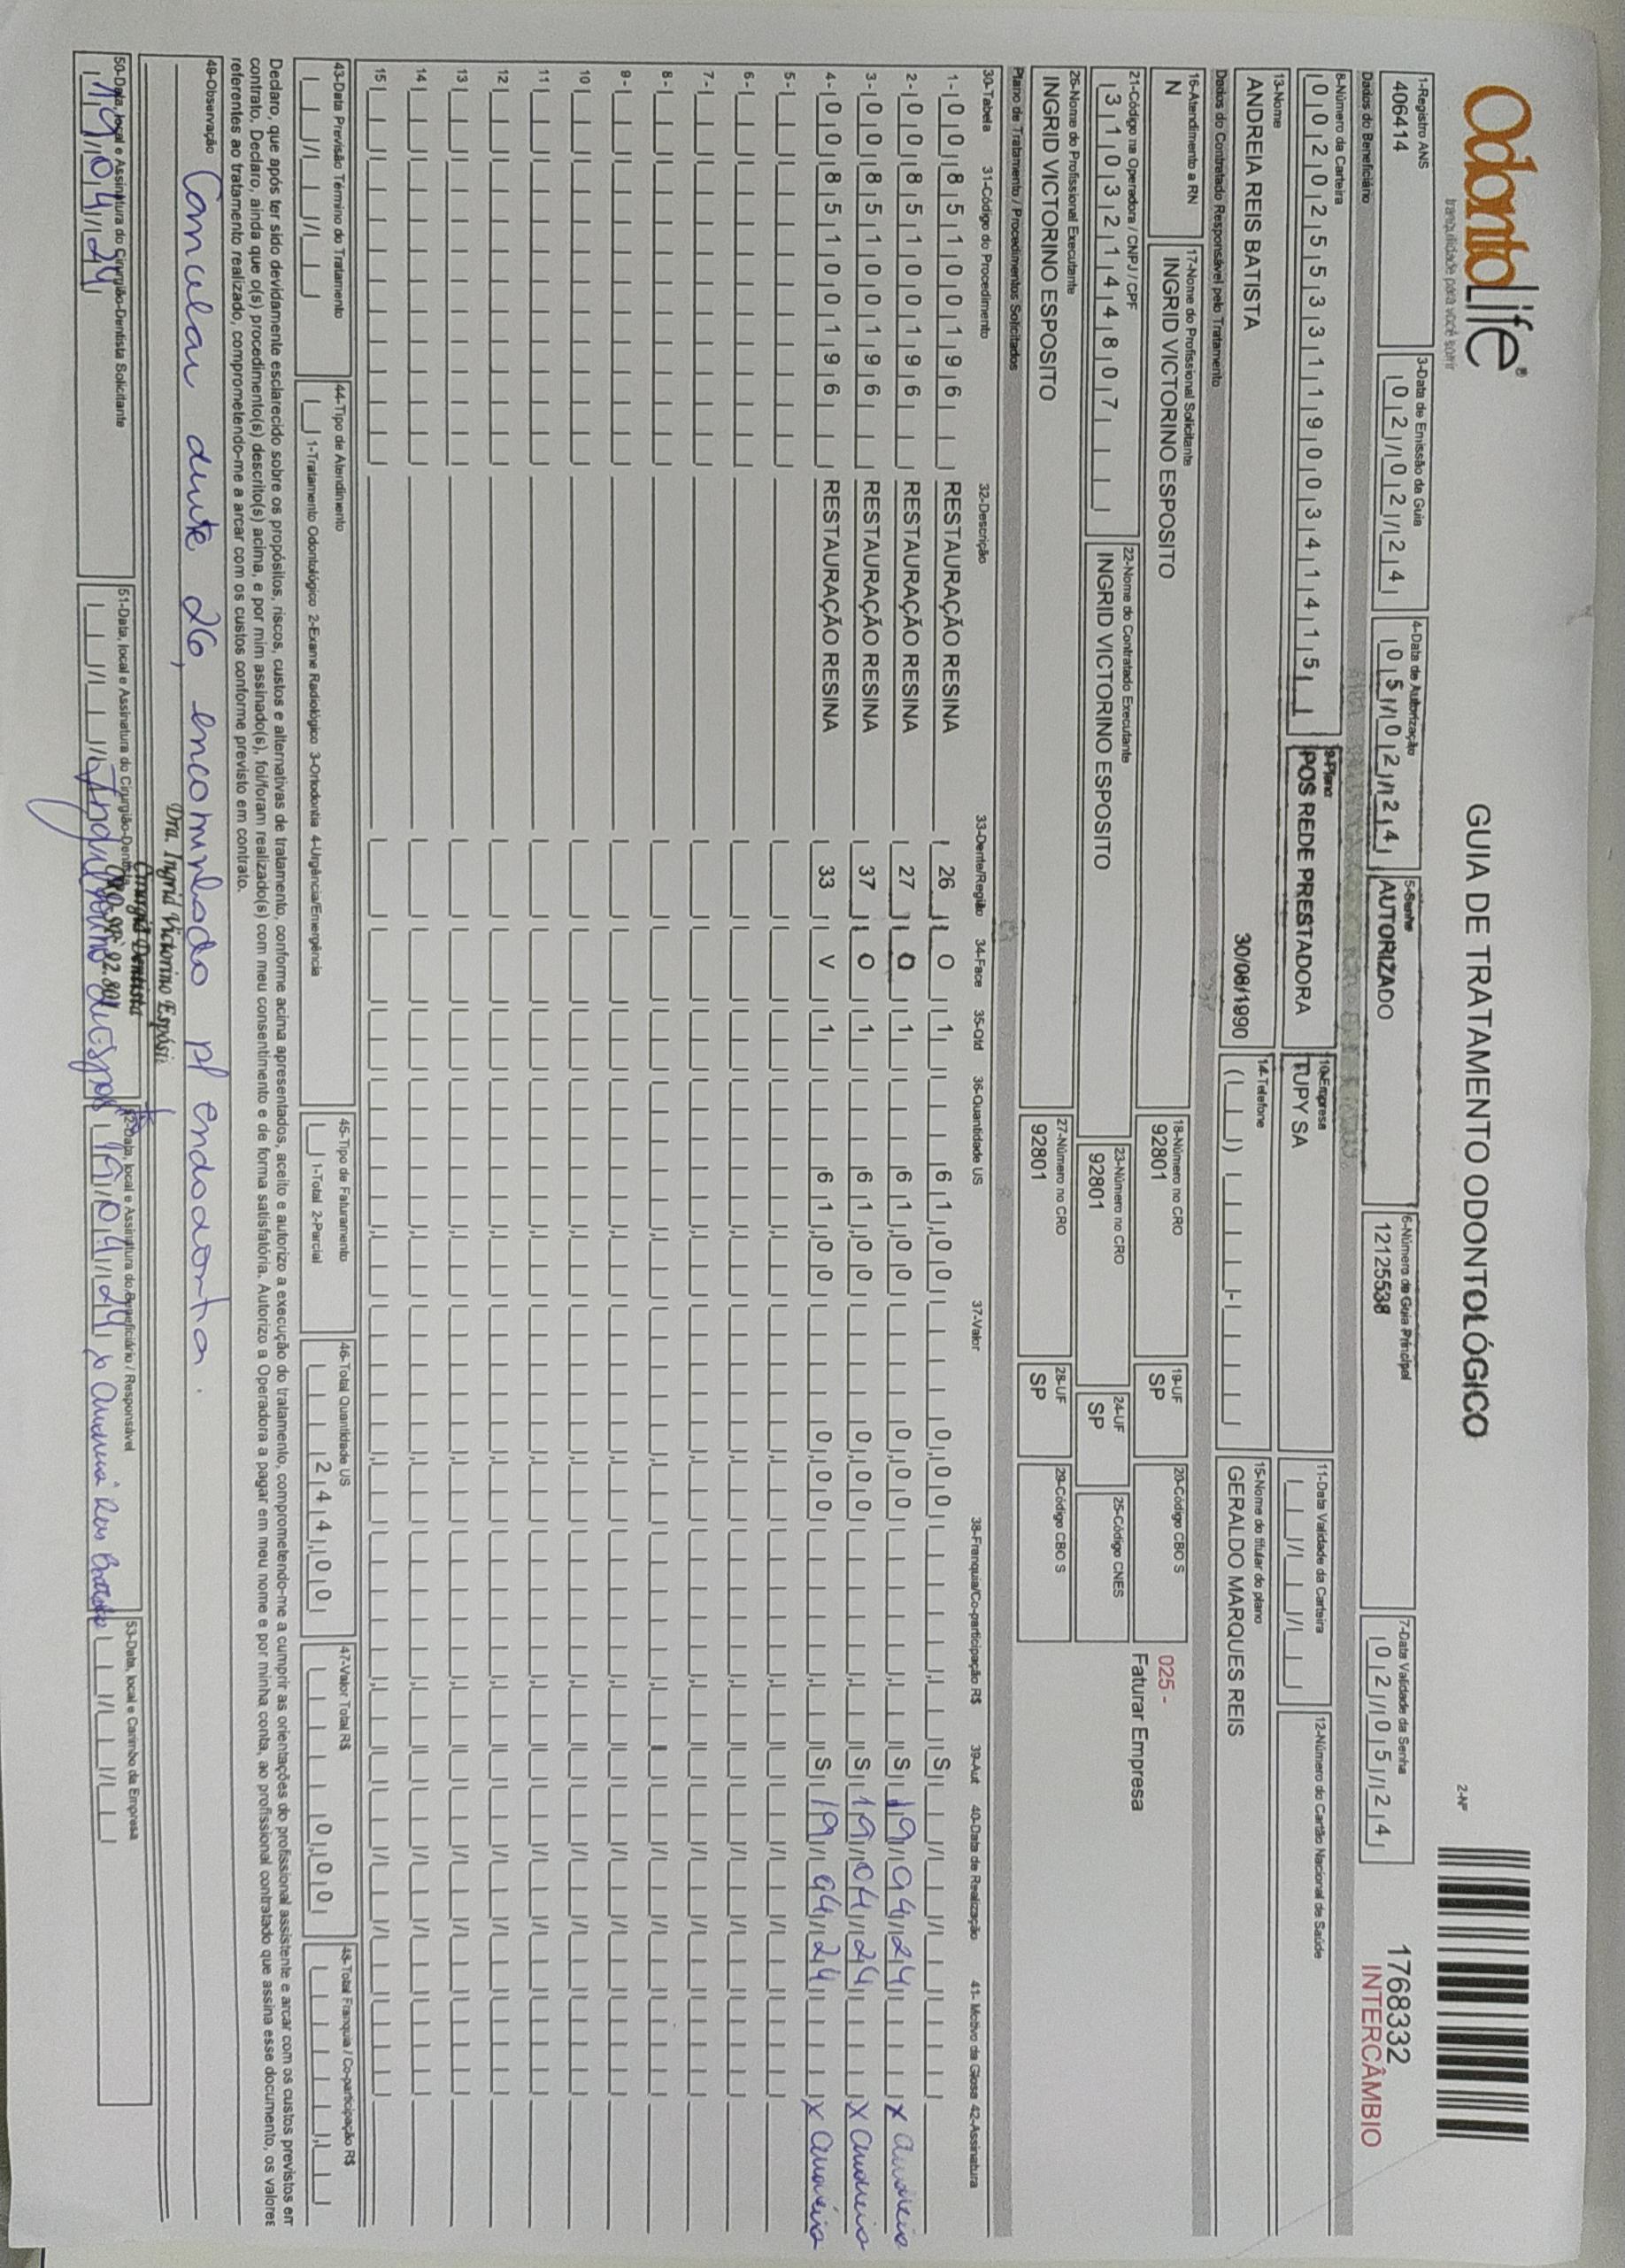 OdontoLife®
tranquilidade para você sorrir
GUIA DE TRATAMENTO ODONTOLÓGICO
2-Nº
1768332
INTERCÂMBIO
1-Registro ANS
406414
3-Data de Emissão da Guia
02/02/24
4-Data de Autorização
05/02/24
5-Senha
AUTORIZADO
6-Número da Guia Principal
12125538
7-Data Validade da Senha
02/05/24
Dados do Beneficiário
8-Número da Carteira
00202553311900341415
9-Plano
POS REDE PRESTADORA
10-Empresa
TUPY SA
11-Data Validade da Carteira
12-Número do Cartão Nacional de Saúde
13-Nome
ANDREIA REIS BATISTA
30/08/1990
14-Telefone
15-Nome do titular do plano
GERALDO MARQUES REIS
Dados do Contratado Responsável pelo Tratamento
16-Atendimento a RN
N
17-Nome do Profissional Solicitante
INGRID VICTORINO ESPOSITO
18-Número no CRO
92801
19-UF
SP
20-Código CBO S
025 -
Faturar Empresa
21-Código na Operadora / CNPJ / CPF
31032144807
22-Nome do Contratado Executante
INGRID VICTORINO ESPOSITO
23-Número no CRO
92801
24-UF
SP
25-Código CNES
26-Nome do Profissional Executante
INGRID VICTORINO ESPOSITO
27-Número no CRO
92801
28-UF
SP
29-Código CBO S
Plano de Tratamento / Procedimentos Solicitados
30-Tabela 31-Código do Procedimento 32-Descrição 33-Dente/Região 34-Face 35-Qtd 36-Quantidade US 37-Valor 38-Franquia/Co-participação R$ 39-Aut 40-Data de Realização 41- Motivo da Glosa 42-Assinatura
1- 00 85100196 RESTAURAÇÃO RESINA 26 O 1 61,00 0,00 S
2- 00 85100196 RESTAURAÇÃO RESINA 27 O 1 61,00 0,00 S 19/04/24 x Andreia
3- 00 85100196 RESTAURAÇÃO RESINA 37 O 1 61,00 0,00 S 19/04/24 x Andreia
4- 00 85100196 RESTAURAÇÃO RESINA 33 V 1 61,00 0,00 S 19/04/24 x Andreia
5-
6-
7-
8-
9-
10
11
12
13
14
15
43-Data Previsão Término do Tratamento
44-Tipo de Atendimento
1-Tratamento Odontológico 2-Exame Radiológico 3-Ortodontia 4-Urgência/Emergência
45-Tipo de Faturamento
1-Total 2-Parcial
46-Total Quantidade US
244,00
47-Valor Total R$
0,00
48-Total Franquia / Co-participação R$
Declaro, que após ter sido devidamente esclarecido sobre os propósitos, riscos, custos e alternativas de tratamento, conforme acima apresentados, aceito e autorizo a execução do tratamento, comprometendo-me a cumprir as orientações do profissional assistente e arcar com os custos previstos em
contrato. Declaro, ainda que o(s) procedimento(s) descrito(s) acima, e por mim assinado(s), foi/foram realizado(s) com meu consentimento e de forma satisfatória. Autorizo a Operadora a pagar em meu nome e por minha conta, ao profissional contratado que assina esse documento, os valores
referentes ao tratamento realizado, comprometendo-me a arcar com os custos conforme previsto em contrato.
49-Observação
Cancelar dente 26, encaminhado p/ endodontia.
Dra. Ingrid Victorino Espósi
Cirurgiã Dentista
50-Data, local e Assinatura do Cirurgião-Dentista Solicitante
19/04/24
51-Data, local e Assinatura do Cirurgião-Dentista
52-Data, local e Assinatura do Beneficiário / Responsável
19/04/24 x Andreia Reis Batista
53-Data, local e Carimbo da Empresa